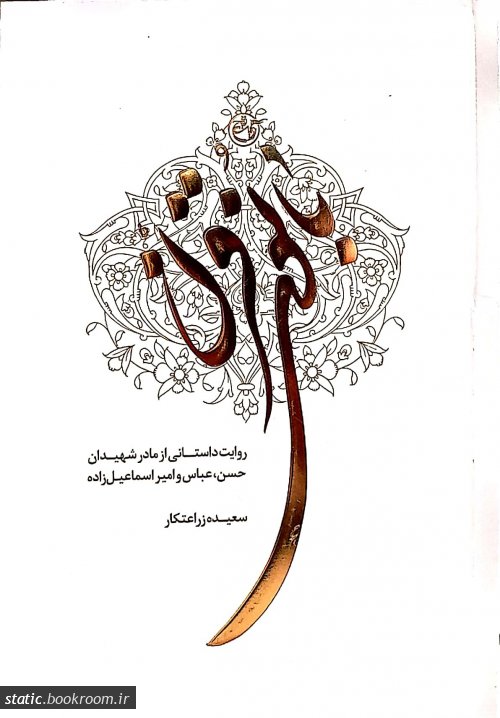 روایت داستانی از مادر شهیدان
حسن، عباس و امیر اسماعیل‌زاده
سعیده زراعتکار
static.bookroom.ir